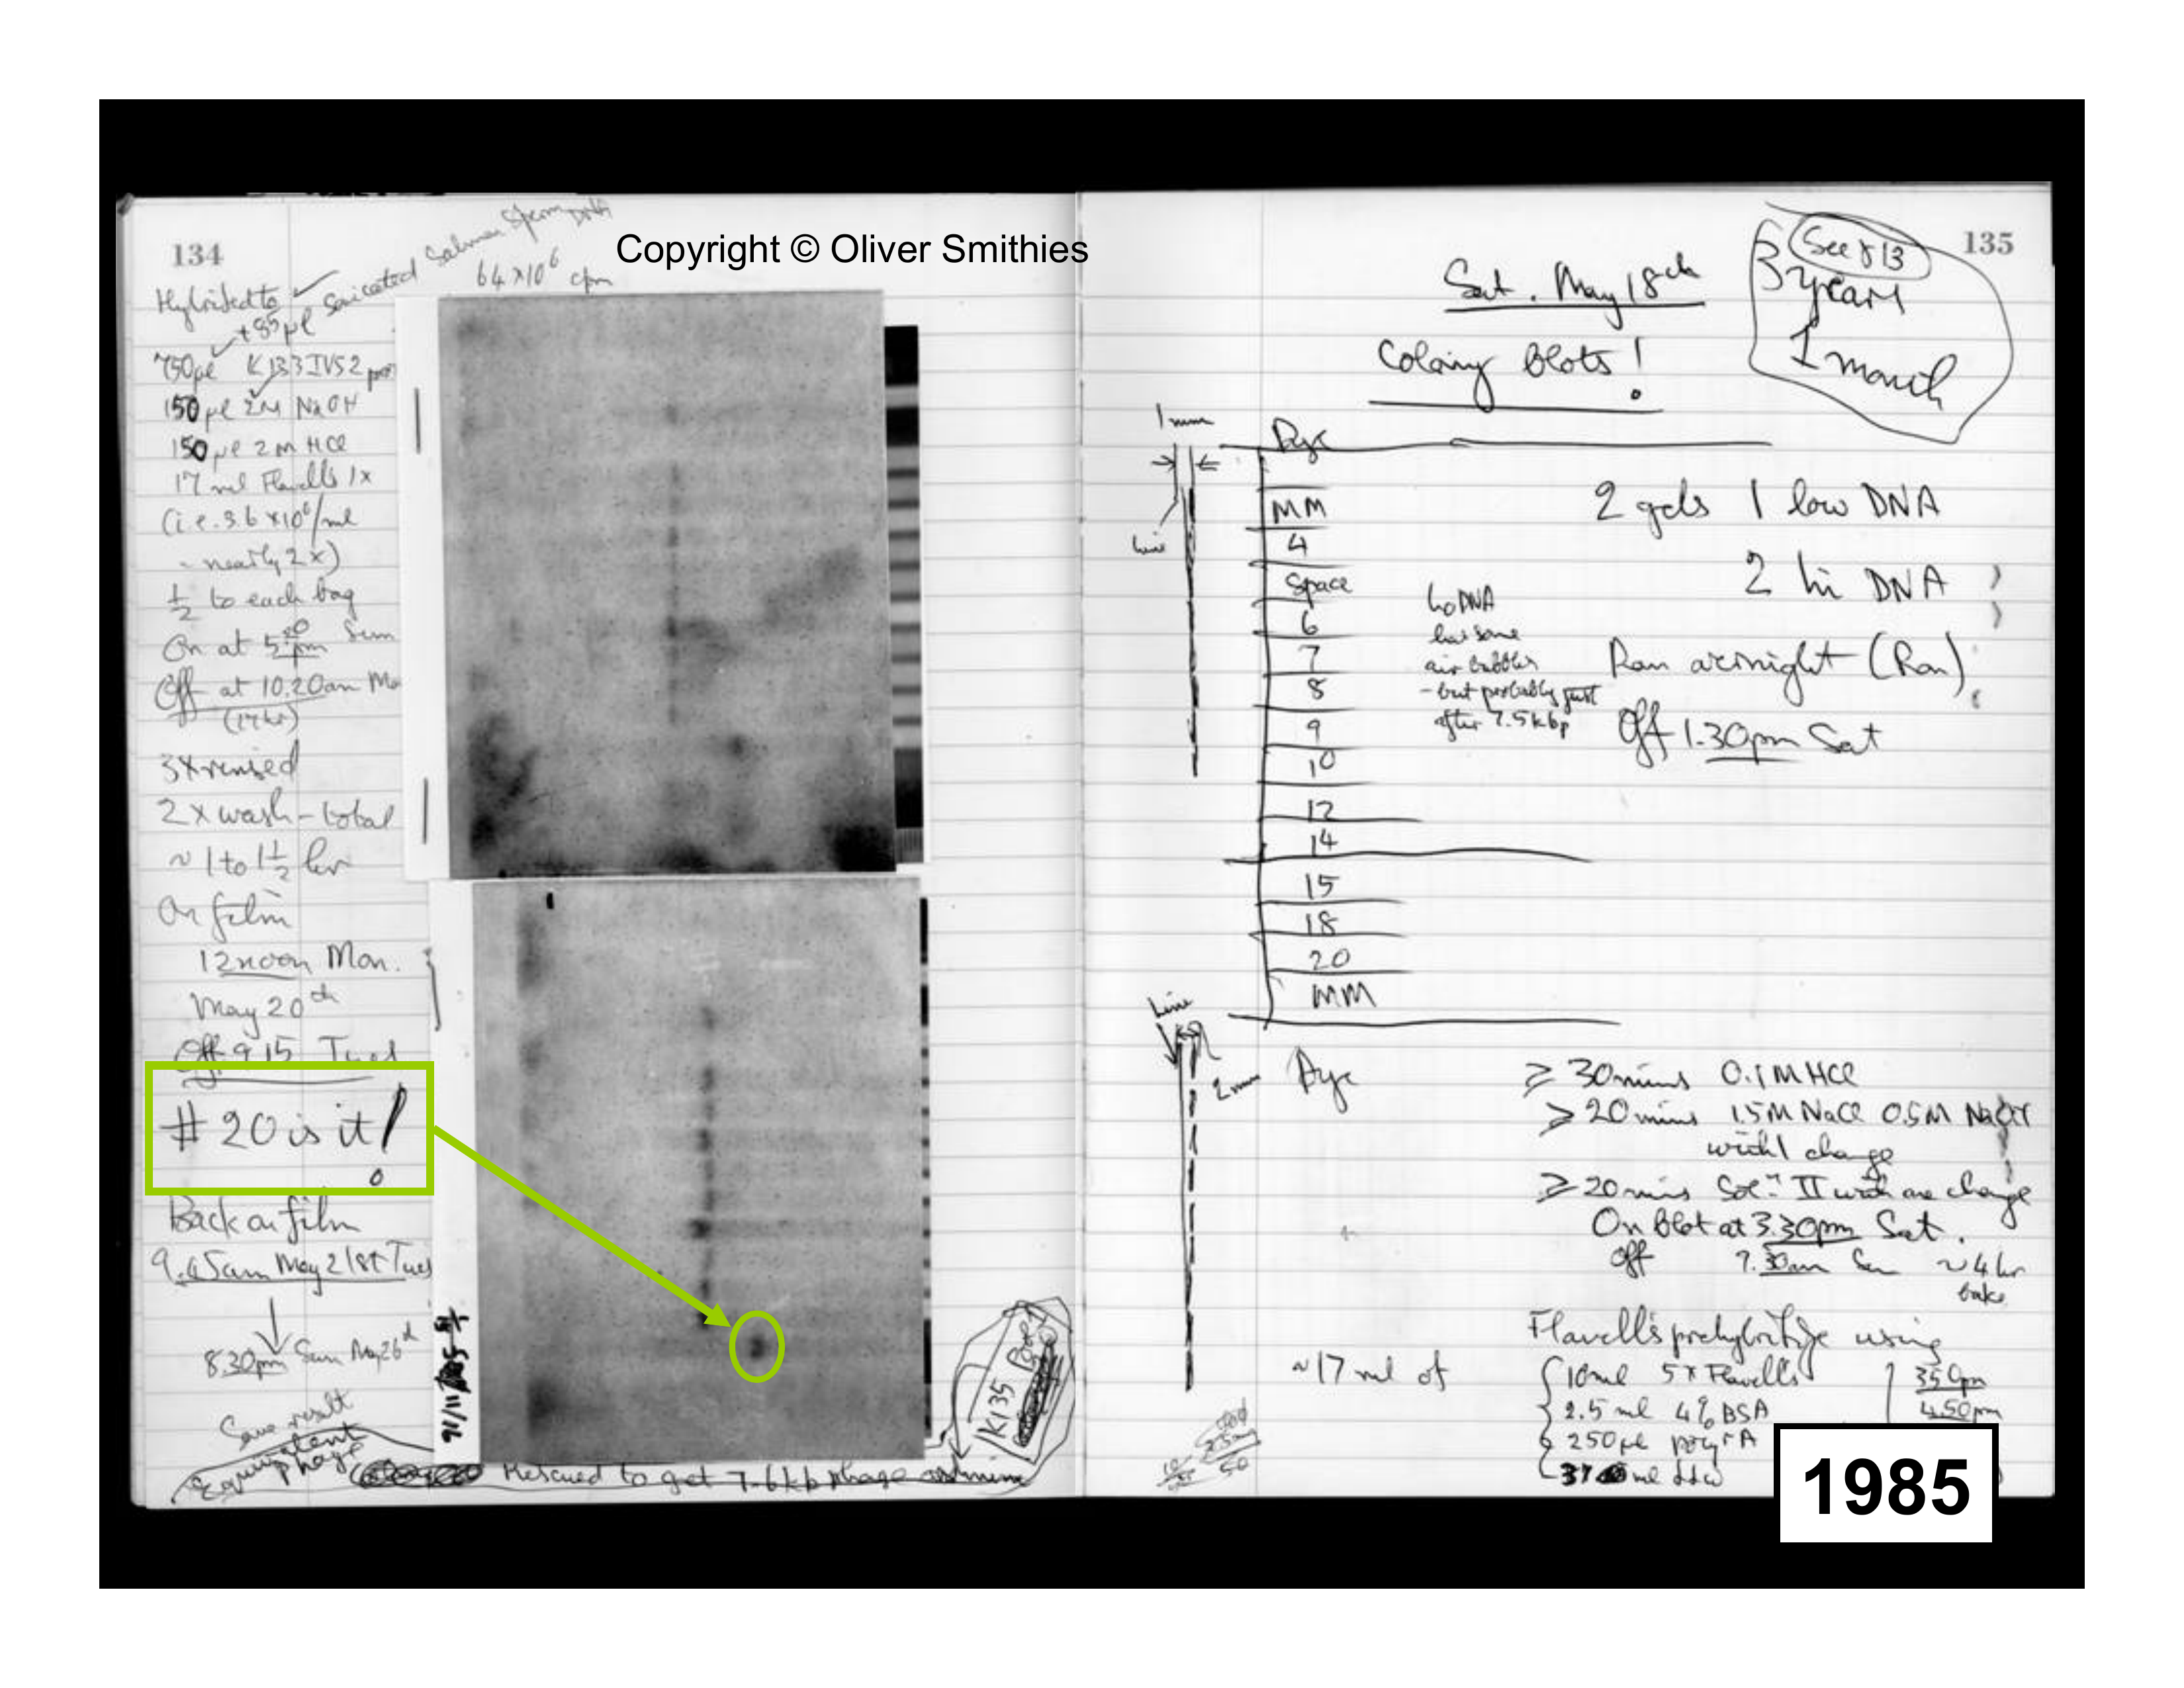 Copyright © Oliver Smithies
134
Hybrided to
+85µl sonicated Salmon Sperm DNA
64 x 10⁶ cpm
750µl K133 IVS2
150 µl 2M NaOH
150 µl 2M HCl
17 ml Flavells 1x
(i.e. 3.6 x10⁶/ml
- nearly 2x)
½ to each bag
On at 5.20 pm Sun
Off at 10.20am Mo
(17hr)
3x rinsed
2 x wash - total
~ 1 to 1½ hr
On film
12 noon Mon.
May 20th
Off 9 15 Tues
# 20 is it!
Back on film
9.45am May 21st Tues
8.30pm Sun May 26th
Same result
Equivalent
phage
Rescued to get 7.6kb phage
K135
135
See p 13
3 years
1 month
Sat. May 18th
Colony Blots!
1 mm
Line
Dye
MM
4
Space
6
7
8
9
10
12
14
15
18
20
MM
Dye
2 gels 1 low DNA
2 hi DNA
Lo DNA
has some
air bubbles
- but probably just
after 7.5kbp
Ran overnight (Ran)
Off 1.30pm Sat
Line
2mm
≥ 30 mins 0.1M HCl
≥ 20 mins 1.5M NaCl 0.5M NaOH
with 1 change
≥ 20 mins Sol.n II with one change
On Blot at 3.30pm Sat.
Off 7.30am Sun ~4 hr
bake
Flavell's prehybridize using
~17 ml of
10ml 5x Flavells
2.5 ml 4% BSA
250µl poly rA
3.50pm
4.50pm
1985